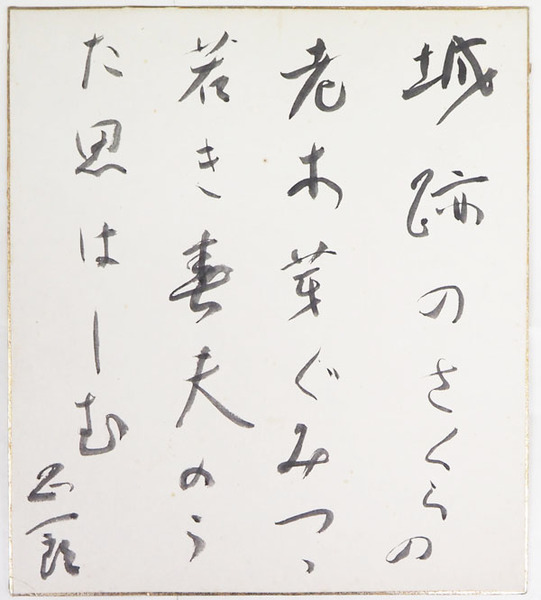 城跡のさくらの
老木芽ぐみつゝ
若き春夫のう
た思はしむ